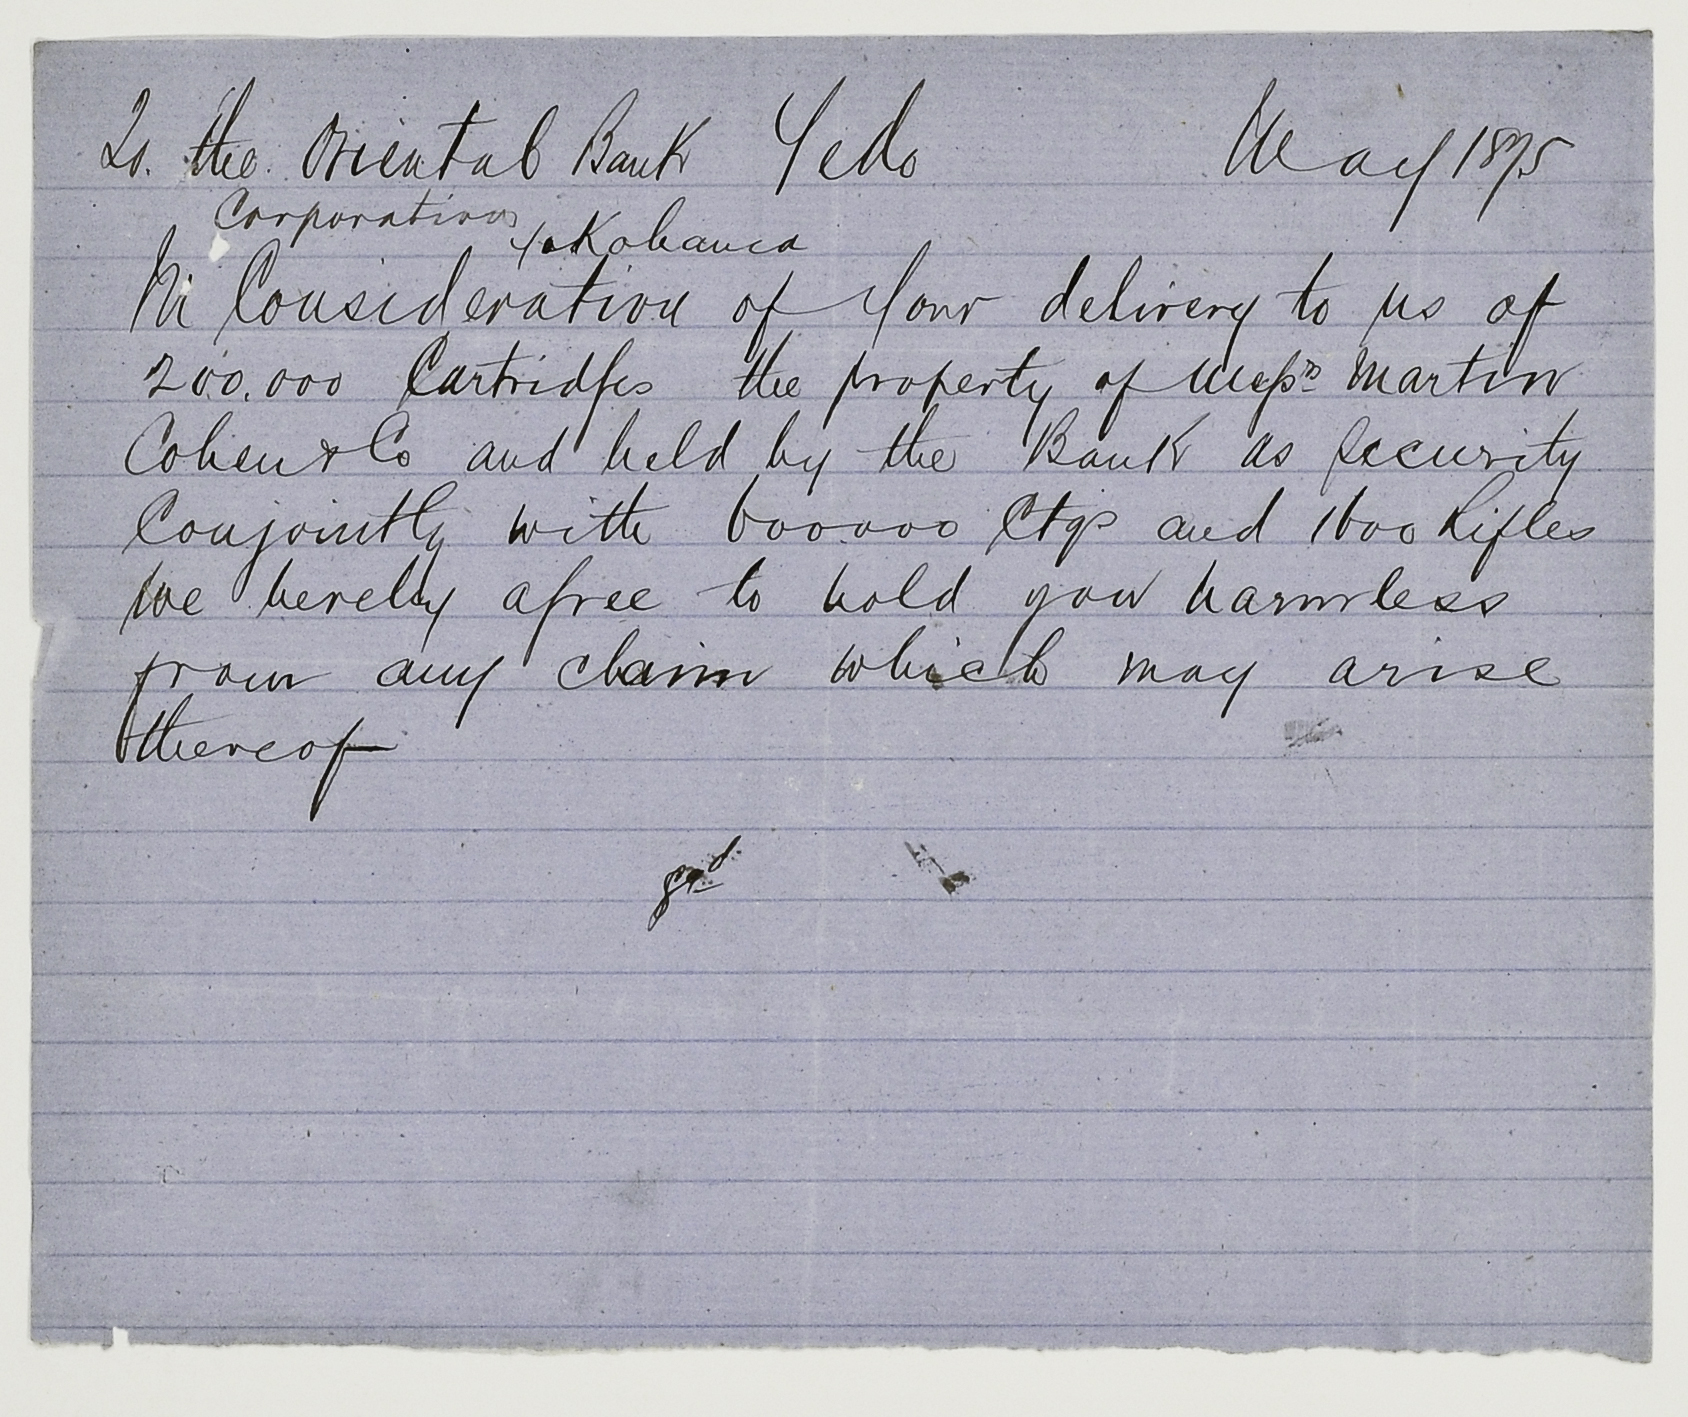 To. the Oriental Bank Yedo May 1875
Corporation
Yokohama
In Consideration of Your delivery to us of
200.000 Cartridges the property of Mess<sup>rs</sup> Martin
Cohen & Co and held by the Bank as Security
Conjointly with 600.000 Ctgs and 1600 Rifles
We hereby agree to hold you harmless
from any claim which may arise
thereof